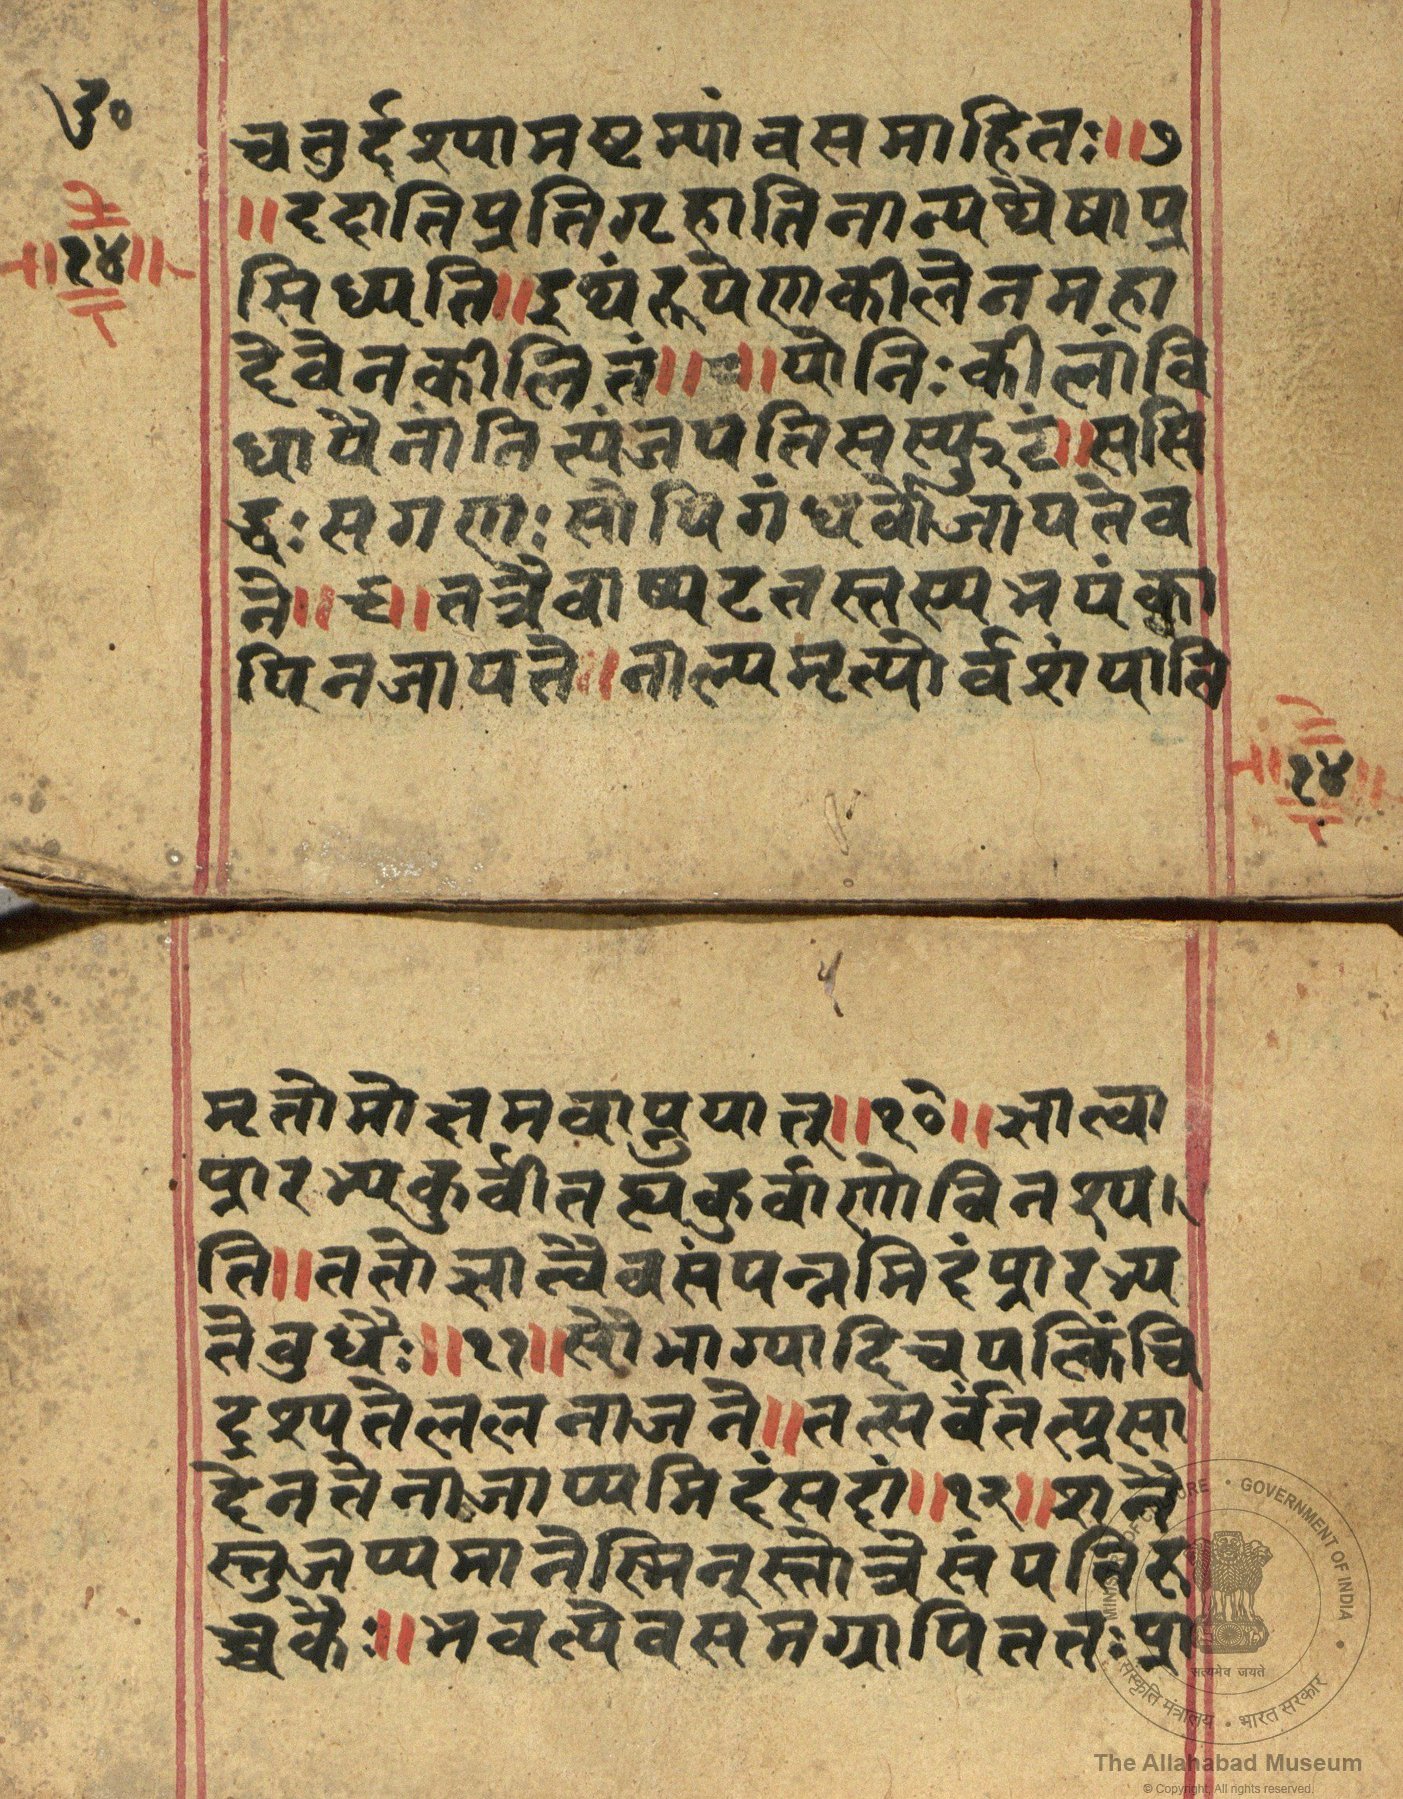 ३०
चतुर्द्दश्यामष्टम्यां वसमाहितः॥७
॥ददातिप्रतिगृह्णातिनान्यथैषाप्र
सिध्यति॥इथंरूपेणकीलेनमहा
देवेनकीलितं॥ ॥योनिःकीलांवि
धायैनांनित्यंजपतिसस्फुटं॥ससि
द्धःसगणःसोपिगंधर्वोजायतेव
ने॥९॥तत्रैवाप्यटतस्तस्यभयंक्वा
पिनजायते॥नाल्पमृत्योर्वशंयाति
॥१४॥
॥१४॥
मृतोमोक्षमवाप्नुयात्॥१०॥ज्ञात्वा
प्रारभ्यकुर्वीतह्यकुर्वाणोविनश्य।
ति॥ततोज्ञात्वैवसंपन्नमिदंप्रारभ्य
तेबुधैः॥११॥सौभाग्यादिचयत्किंचि
दृश्यतेललनाजने॥तत्सर्वंतत्प्रसा
देनतेनाजाप्यमिदंसदां॥१२॥शनै
स्तुजप्यमानेस्मिन्स्तोत्रेसंपतिरु
च्चकैः॥भवत्येवसमग्रापिततःप्रा
MINISTRY OF CULTURE • GOVERNMENT OF INDIA
सत्यमेव जयते
संस्कृति मंत्रालय • भारत सरकार
The Allahabad Museum
© Copyright. All rights reserved.